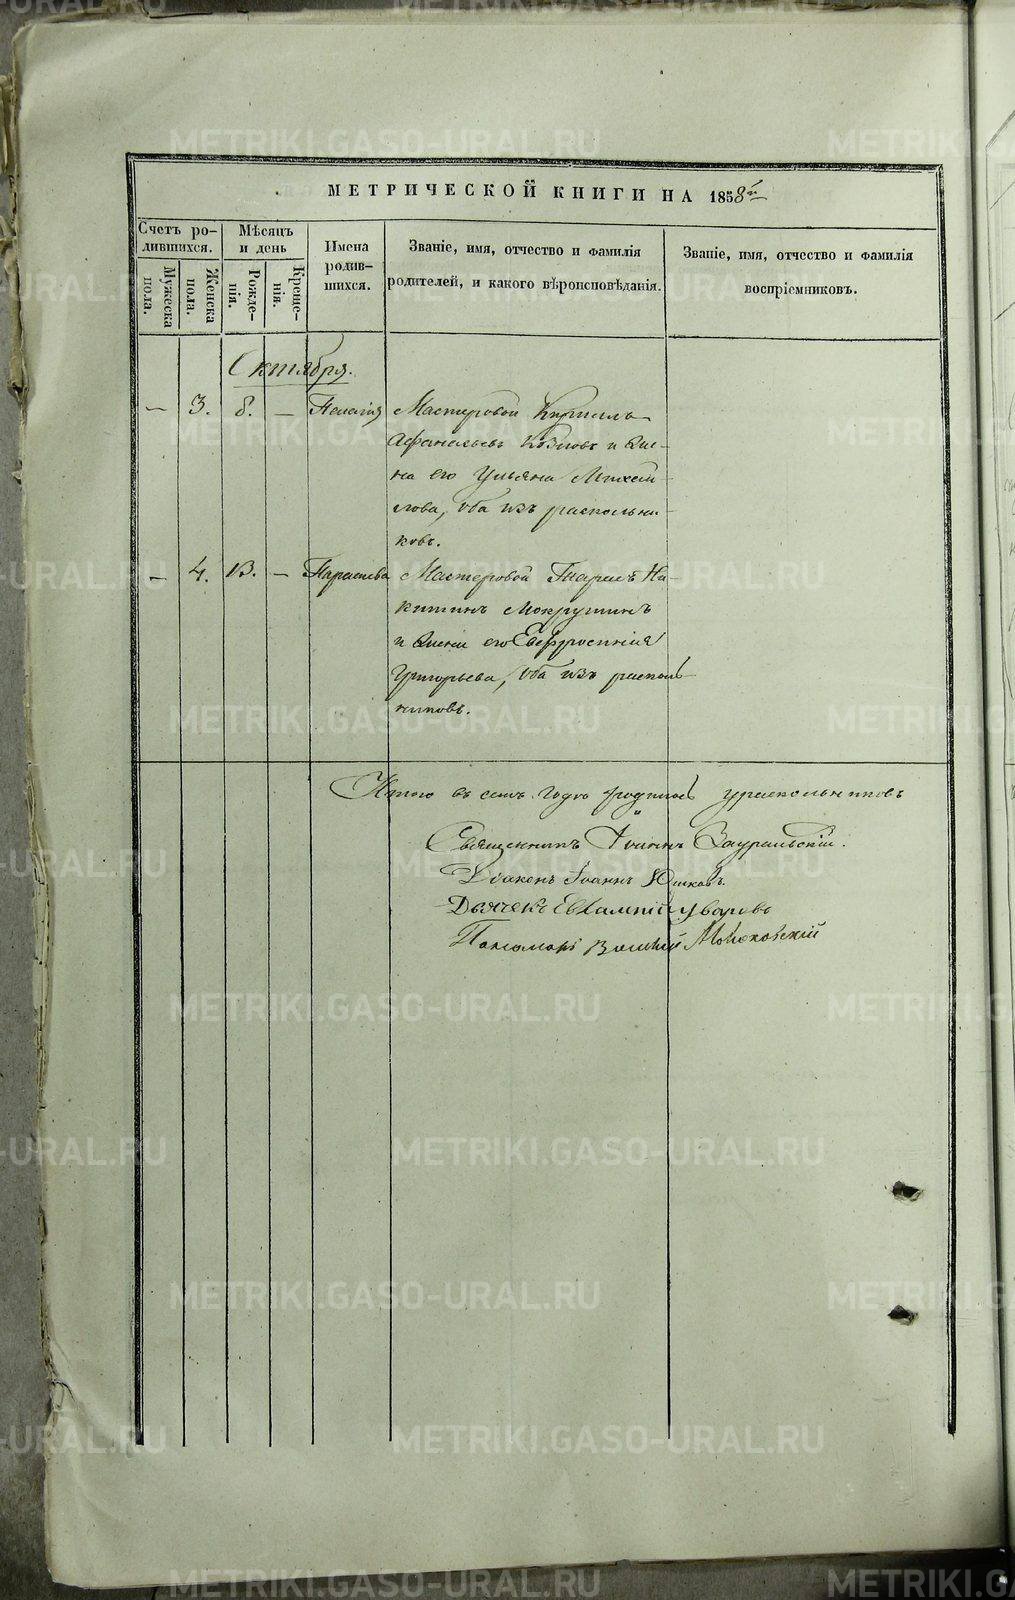 МЕТРИЧЕСКОЙ КНИГИ НА 1858й
Счетъ ро-
дившихся.
Мужеска
пола.
Женска
пола.
Мѣсяцъ
и день
Рожде-
нія.
Креще-
нія.
Имена
родив-
шихся.
Званіе, имя, отчество и фамилія
родителей, и какого вѣроисповѣданія.
Званіе, имя, отчество и фамилія
воспріемниковъ.
Октября.
— 3. 8. — Пелагія Мастеровой Кирилъ
Афанасьевъ Козловъ и жена
его Ульяна Михаи-
лова, оба изъ раскольни-
ковъ.
— 4. 13. — Параскева Мастеровой Тарасъ Ни-
китинъ Мокрушинъ
и жена его Евфросинія
Григорьева, оба изъ расколь
никовъ.
Итого въ семъ году родилось у раскольниковъ
Священникъ Іоаннъ Зауральскій.
Діаконъ Іоаннъ Юшковъ.
Дьячекъ Евлампій Уваровъ
Пономарь
METRIKI.GASO-URAL.RU